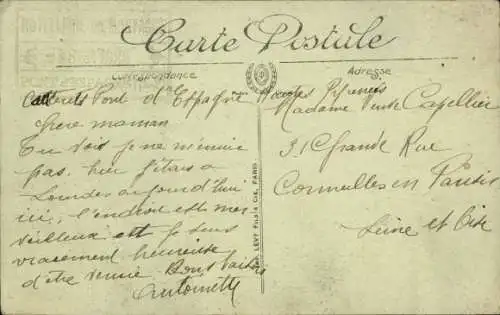 Carte Postale
Correspondance
Adresse
Cauterets Pont d'Espagne Hautes Pyrenées
Chere maman
Tu vois je ne m'ennuie
pas, hier j'étais a
Lourdes aujourd'hui
ici, l'endroit est mer
veilleux et je suis
vraiement heureuse
d'être venue Bons baisers
Antoinette
Madame Capellier
31 Grande Rue
Cormeilles en Parisis
Seine et Oise
LEVY Fils & Cie, PARIS